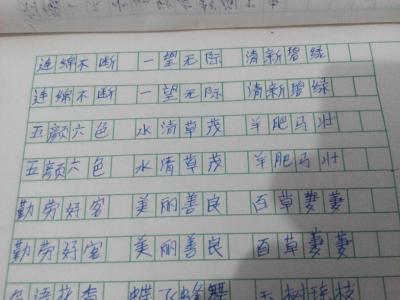 连绵不断 一望无际 清新碧绿
连绵不断 一望无际 清新碧绿
五颜六色 水清草茂 羊肥马壮
五颜六色 水清草茂 羊肥马壮
勤劳好客 美丽善良 百草萋萋
勤劳好客 美丽善良 百草萋萋
鸟语花香 蝶飞蜂舞 玉树琼枝